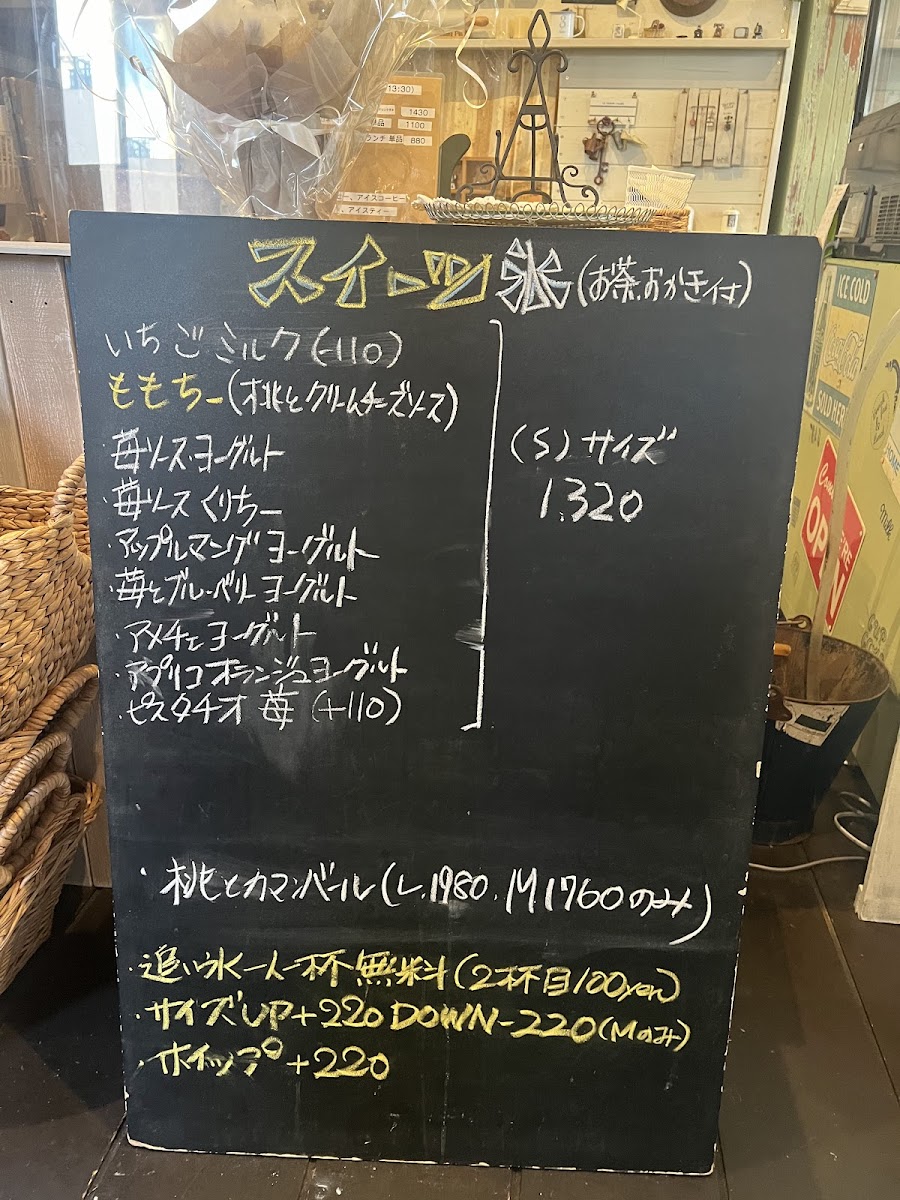 (13:30)
1430
単品 1100
ランチ 単品 880
アイスコーヒー
、アイスティー
スイーツ氷(お茶、おかき付)
いちごミルク(-110)
ももちー(桃とクリームチーズソース)
苺ソース・ヨーグルト
・苺ソースくりちー
・アップルマンゴヨーグルト
・苺とブルーベリーヨーグルト
・アメチェヨーグルト
・アプリコオランジュヨーグルト
・ピスタチオ苺(+110)
(S)サイズ
1.320
・桃とカマンベール(L.1980.M1760のみ)
・追い氷一人一杯無料(2杯目100yen)
・サイズUP+220 DOWN-220(Mのみ)
・ホイップ+220
ICE COLD
SOLD HERE